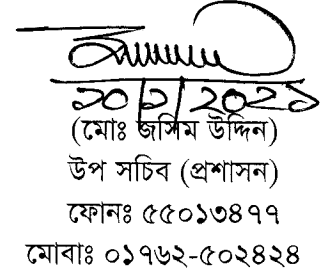 ১০/১/২০২১
(মোঃ জসিম উদ্দিন)
উপ সচিব (প্রশাসন)
ফোনঃ ৫৫০১৩৪৭৭
মোবাঃ ০১৭৬২-৫০২৪২৪